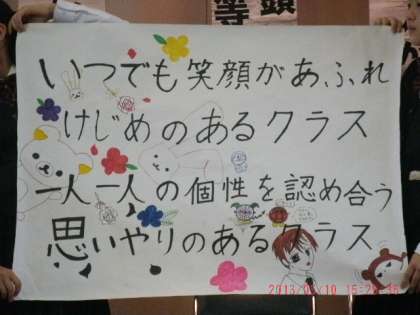 等 頭
いつでも笑顔があふれ
けじめのあるクラス
一人一人の個性を認め合う
思いやりのあるクラス